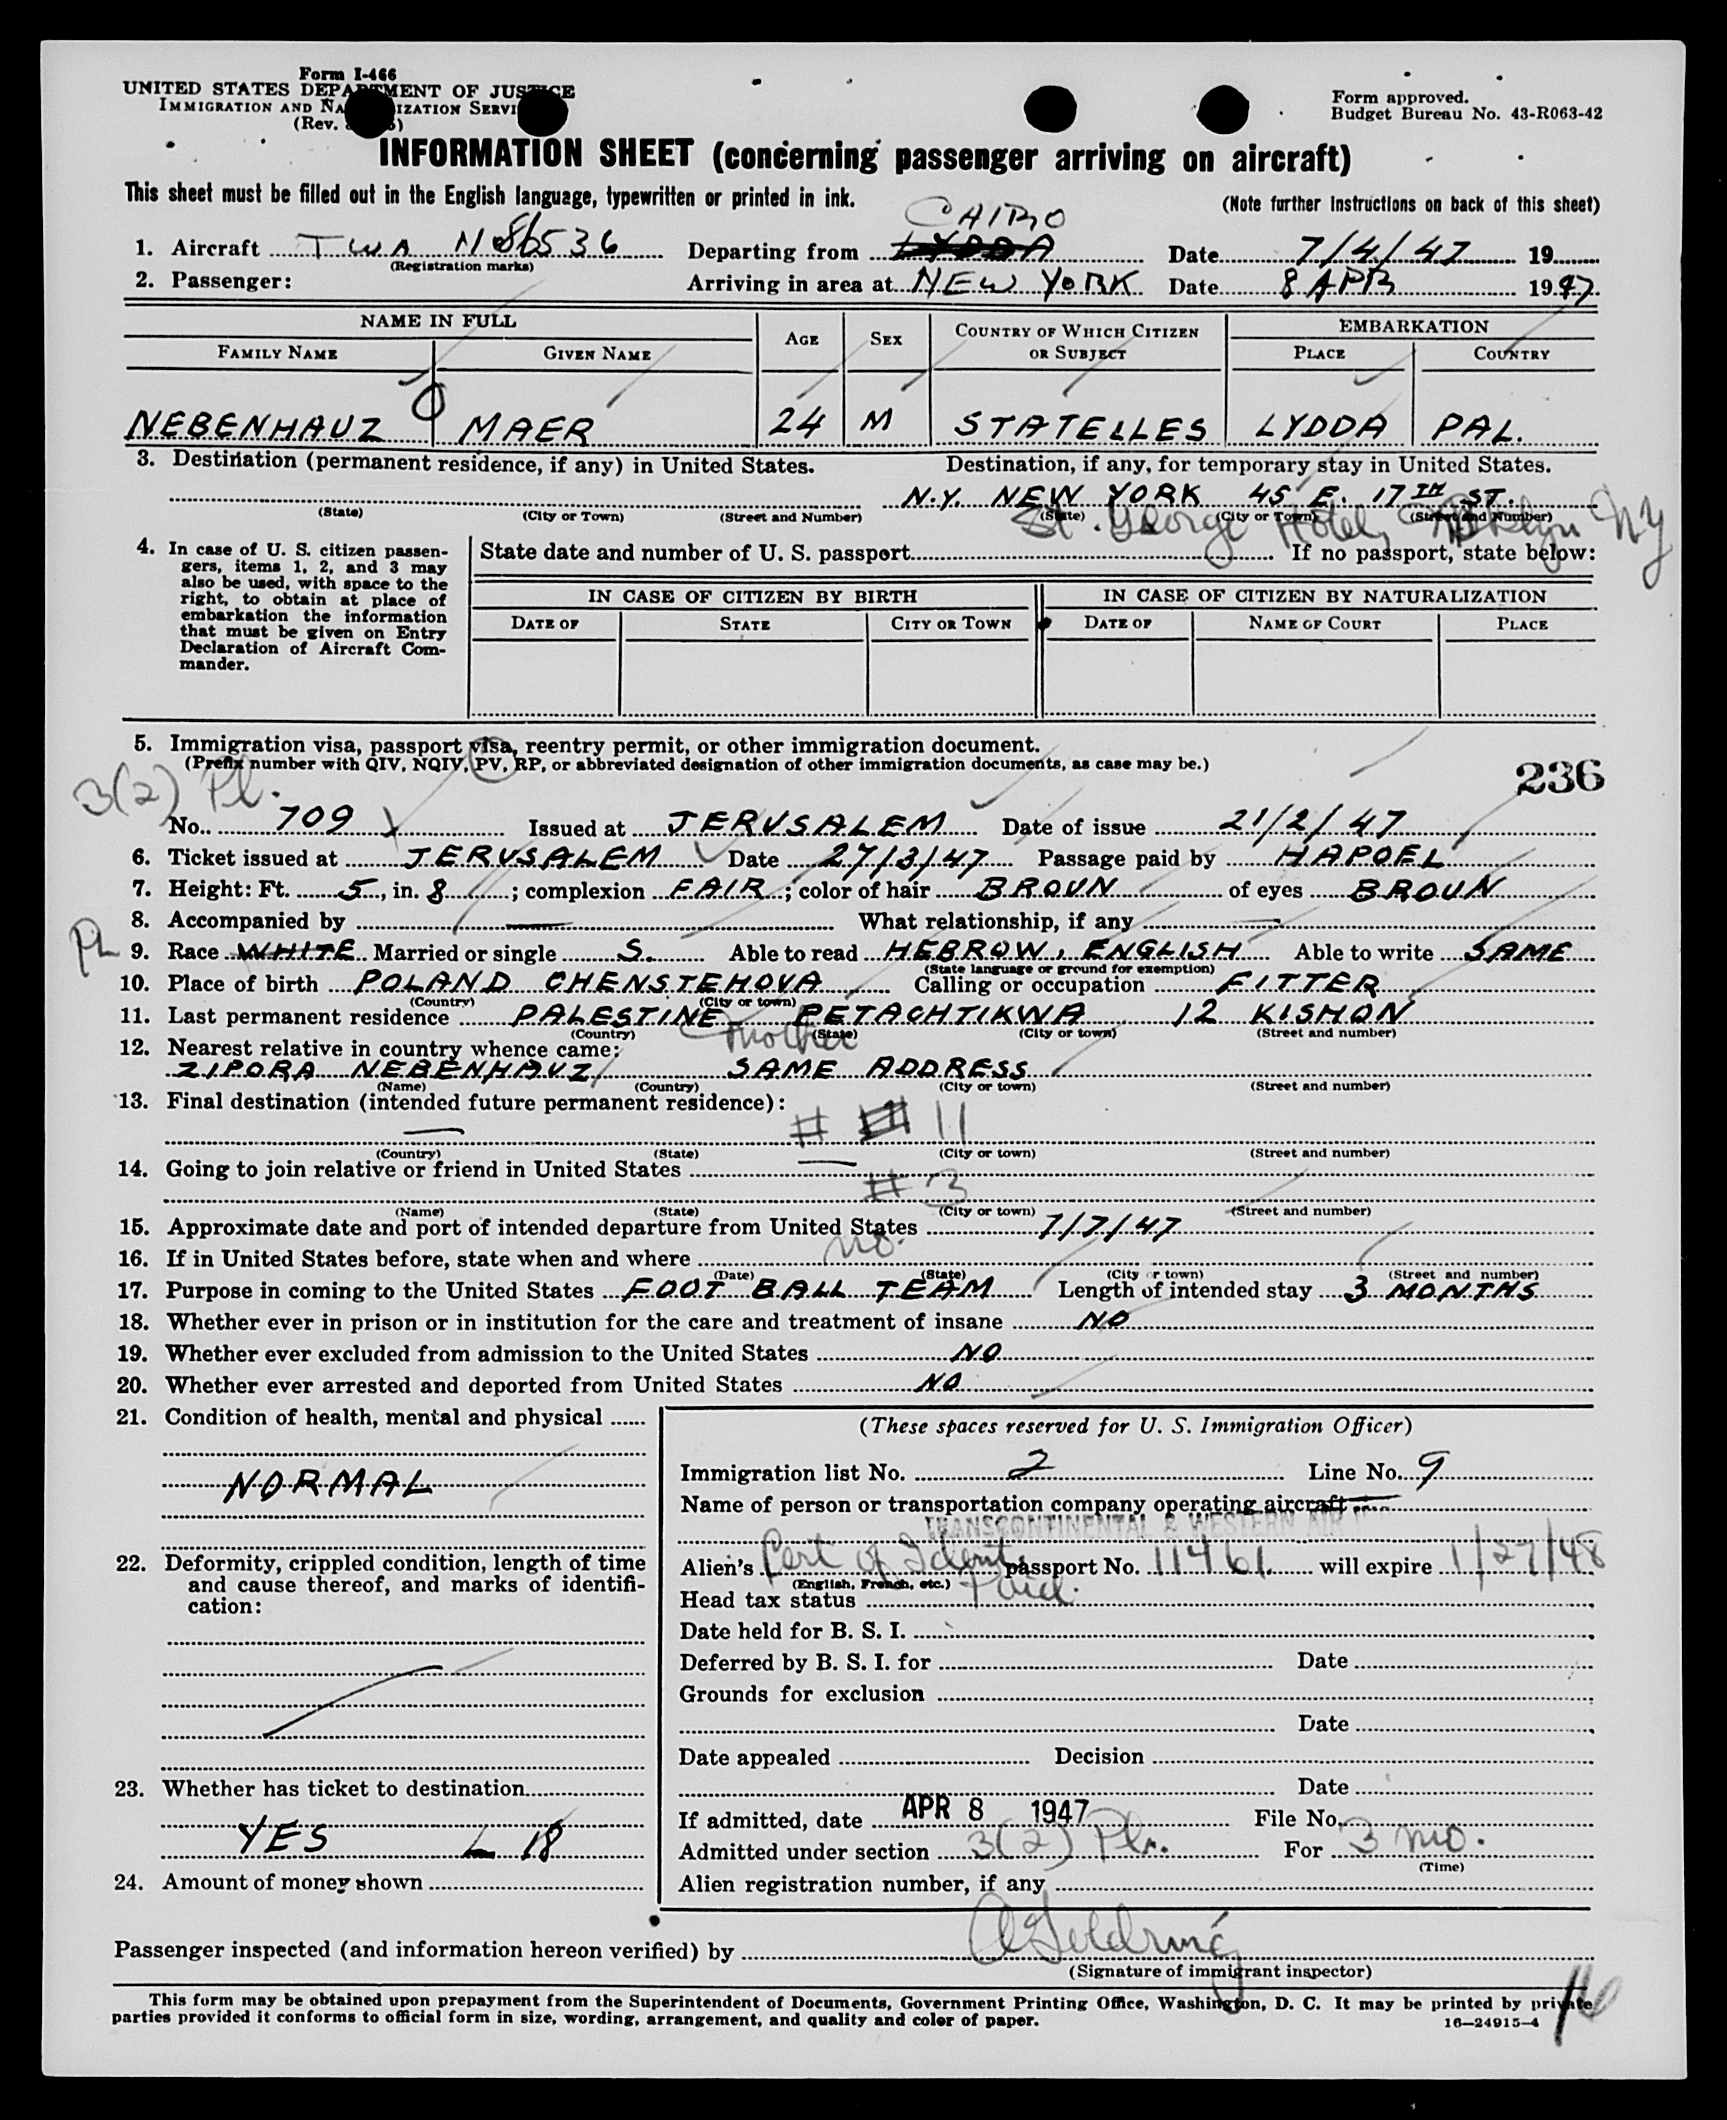 Form I-466
UNITED STATES DEPARTMENT OF JUSTICE
IMMIGRATION AND NATURALIZATION SERVICE
(Rev.
Form approved.
Budget Bureau No. 43-R063-42
INFORMATION SHEET (concerning passenger arriving on aircraft)
This sheet must be filled out in the English language, typewritten or printed in ink.
(Note further instructions on back of this sheet)
CAIRO
1. Aircraft TWA N86536 Departing from LYDDA Date 7/4/47 19
(Registration marks)
2. Passenger: Arriving in area at NEW YORK Date 8 APR 1947
NAME IN FULL AGE SEX COUNTRY OF WHICH CITIZEN OR SUBJECT EMBARKATION
FAMILY NAME GIVEN NAME PLACE COUNTRY
NEBENHAUZ MAER 24 M STATELLES LYDDA PAL.
3. Destination (permanent residence, if any) in United States. Destination, if any, for temporary stay in United States.
N.Y. NEW YORK 45 E. 17TH ST.
(State) (City or Town) (Street and Number) (State) (City or Town) (Street and Number)
St. George Hotel, Bklyn NY
4. In case of U. S. citizen passen-
gers, items 1, 2, and 3 may
also be used, with space to the
right, to obtain at place of
embarkation the information
that must be given on Entry
Declaration of Aircraft Com-
mander.
State date and number of U. S. passport If no passport, state below:
IN CASE OF CITIZEN BY BIRTH IN CASE OF CITIZEN BY NATURALIZATION
DATE OF STATE CITY OR TOWN DATE OF NAME OF COURT PLACE
5. Immigration visa, passport visa, reentry permit, or other immigration document.
(Prefix number with QIV, NQIV, PV, RP, or abbreviated designation of other immigration documents, as case may be.)
236
3(2) Pl.
No. 709 Issued at JERUSALEM Date of issue 21/2/47
6. Ticket issued at JERUSALEM Date 27/3/47 Passage paid by HAPOEL
7. Height: Ft. 5, in. 8; complexion FAIR; color of hair BROUN of eyes BROUN
8. Accompanied by — What relationship, if any —
PL
9. Race WHITE Married or single S. Able to read HEBROW, ENGLISH Able to write SAME
(State language or ground for exemption)
10. Place of birth POLAND CHENSTEHOVA Calling or occupation FITTER
(Country) (City or town)
11. Last permanent residence PALESTINE PETACHTIKWA 12 KISHON
(Country) (State) (City or town) (Street and number)
mother
12. Nearest relative in country whence came:
ZIPORA NEBENHAUZ SAME ADDRESS
(Name) (Country) (City or town) (Street and number)
13. Final destination (intended future permanent residence):
— # 11
(Country) (State) (City or town) (Street and number)
14. Going to join relative or friend in United States —
# 3
(Name) (State) (City or town) (Street and number)
15. Approximate date and port of intended departure from United States 7/7/47
16. If in United States before, state when and where no.
(Date) (State) (City or town) (Street and number)
17. Purpose in coming to the United States FOOT BALL TEAM Length of intended stay 3 MONTHS
18. Whether ever in prison or in institution for the care and treatment of insane NO
19. Whether ever excluded from admission to the United States NO
20. Whether ever arrested and deported from United States NO
21. Condition of health, mental and physical
NORMAL
22. Deformity, crippled condition, length of time
and cause thereof, and marks of identifi-
cation:
23. Whether has ticket to destination
YES L 18
24. Amount of money shown
(These spaces reserved for U. S. Immigration Officer)
Immigration list No. 2 Line No. 9
Name of person or transportation company operating aircraft
TRANSCONTINENTAL & WESTERN AIR
Alien's Cert of Ident passport No. 11461 will expire 1/27/48
(English, French, etc.)
Head tax status Paid.
Date held for B. S. I.
Deferred by B. S. I. for Date
Grounds for exclusion
Date
Date appealed Decision
Date
If admitted, date APR 8 1947 File No.
Admitted under section 3(2) Pln. For 3 mo.
(Time)
Alien registration number, if any
Passenger inspected (and information hereon verified) by AGoldring
(Signature of immigrant inspector)
This form may be obtained upon prepayment from the Superintendent of Documents, Government Printing Office, Washington, D. C. It may be printed by private
parties provided it conforms to official form in size, wording, arrangement, and quality and color of paper.
16—24915-4
16